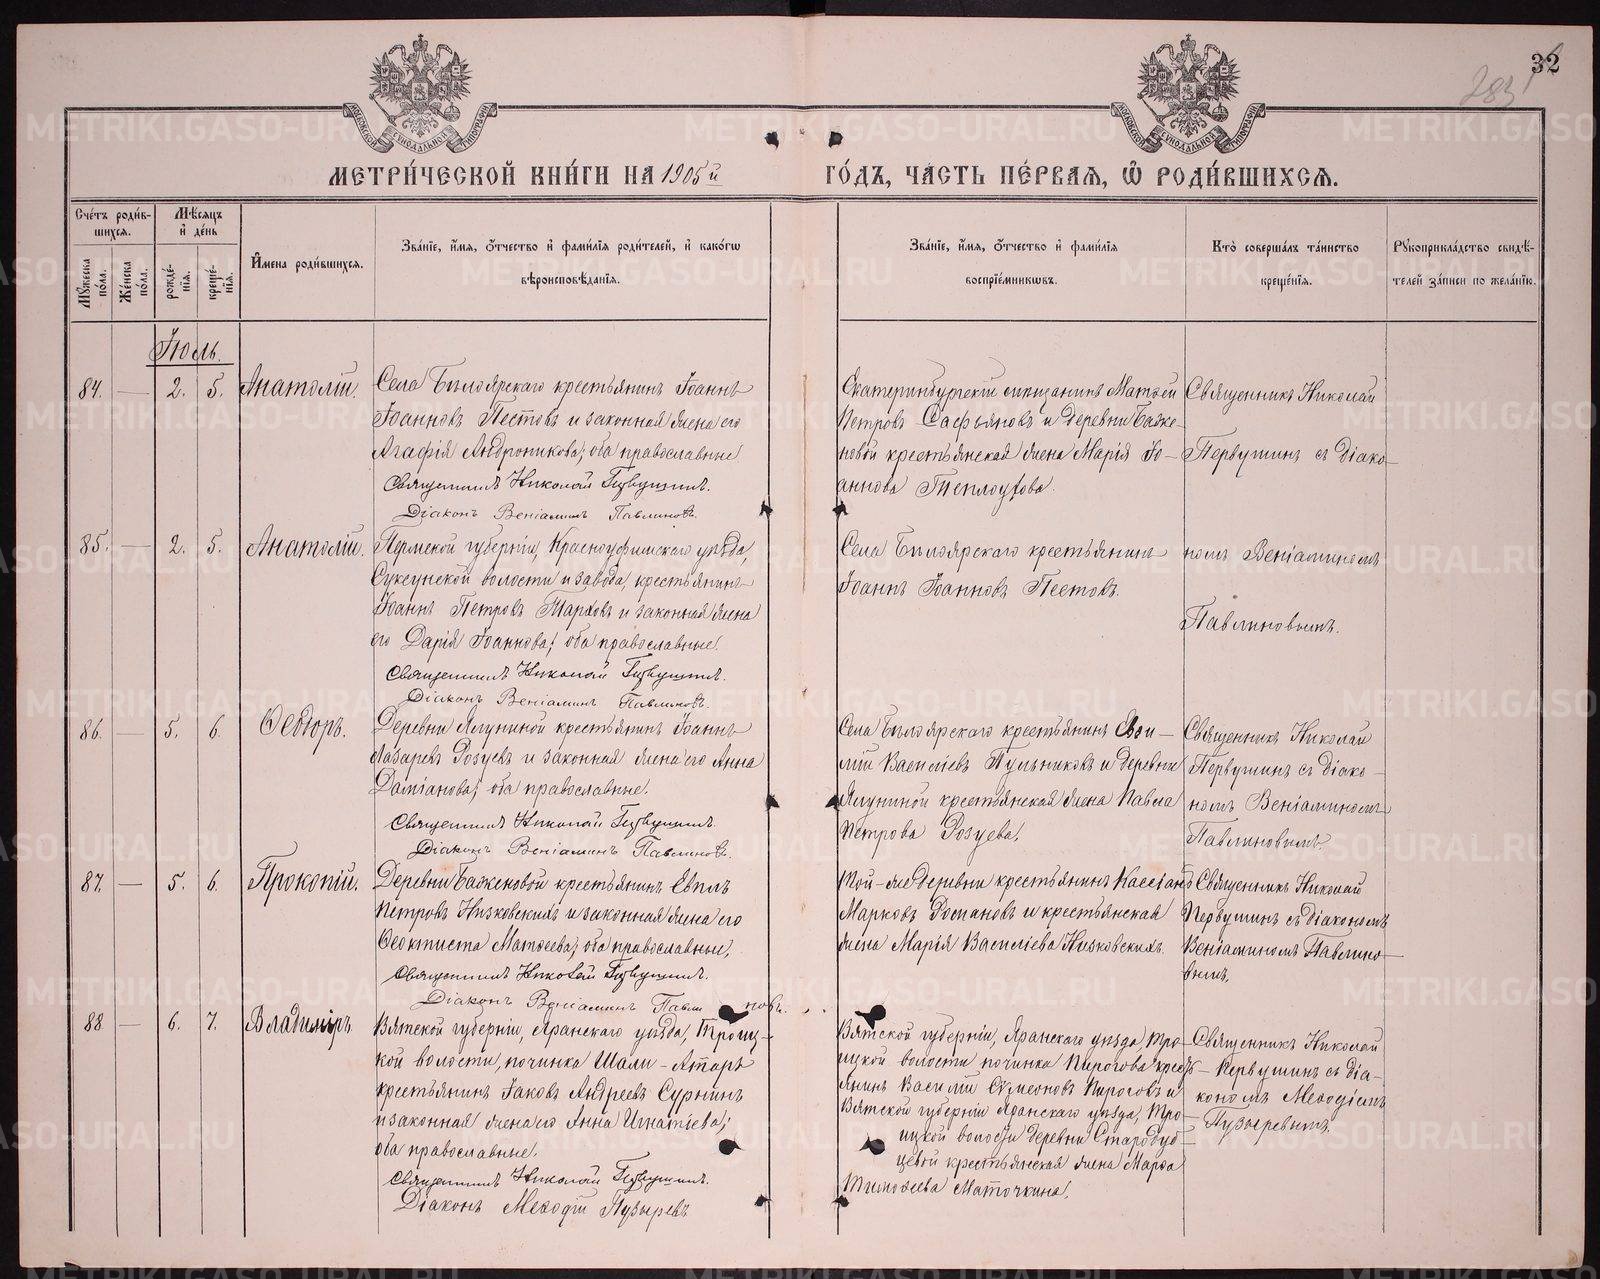 32
283
МЕТРИ́ЧЕСКОЙ КНИ́ГИ НА 1905й ГО́ДЪ, ЧА́СТЬ ПЕ́РВАЯ, Ѿ РОДИ́ВШИХСЯ.
Сче́тъ роди́вшихся.
Мѣ́сяцъ и҆ де́нь
Мꙋ́жеска по́ла.
Же́нска по́ла.
рожде́нїя.
креще́нїя.
И҆мена роди́вшихся.
Зва́нїе, и҆́мя, ѻ҆́тчество и҆ фами́лїя роди́телей, и҆ како́гѡ
вѣроисповѣ́данїя.
Зва́нїе, и҆́мя, ѻ҆́тчество и҆ фами́лїя
воспрїе́мникѡвъ.
Кто̀ соверша́лъ та́инство
креще́нїя.
Рꙋкоприкла́дство свидѣ́-
телей за́писи по жела́нїю.
Іюль.
84. — 2. 5. Анатолій.
Села Бѣлоярскаго крестьянинъ Іоаннъ
Іоанновъ Пестовъ и законная жена его
Агафія Андроникова; оба православные
Священникъ Николай Первушинъ.
Діаконъ Веніаминъ Павлиновъ.
Екатеринбургскій мѣщанинъ Матѳей
Петровъ Сафьяновъ и деревни Баже-
новой крестьянская жена Марія Іо-
аннова Теплоухова.
Священникъ Николай
Первушинъ съ діако-
85. — 2. 5. Анатолій.
Пермской губерніи, Красноуфимскаго уѣзда,
Суксунской волости и завода, крестьянинъ
Іоаннъ Петровъ Тарховъ и законная жена
его Дарія Іоаннова; оба православные.
Священникъ Николай Первушинъ.
Діаконъ Веніаминъ Павлиновъ.
Села Бѣлоярскаго крестьянинъ
Іоаннъ Іоанновъ Пестовъ.
номъ Веніаминомъ
Павлиновымъ.
86. — 5. 6. Ѳеодоръ.
Деревни Ялуниной крестьянинъ Іоаннъ
Лазаревъ Розуевъ и законная жена его Анна
Даміанова; оба православные.
Священникъ Николай Первушинъ.
Діаконъ Веніаминъ Павлиновъ.
Села Бѣлоярскаго крестьянинъ
лій Василіевъ Пульниковъ и деревни
Ялуниной крестьянская жена Павла
Петрова Розуева.
Священникъ Николай
Первушинъ съ діако-
номъ Веніаминомъ
Павлиновымъ.
87. — 5. 6. Прокопій.
Деревни Баженовой крестьянинъ Евплъ
Петровъ Низковскихъ и законная жена его
Ѳеоктиста Матѳеева; оба православные,
Священникъ Николай Первушинъ.
Діаконъ Веніаминъ Павлиновъ.
Той-же деревни крестьянинъ Кассіанъ
Марковъ Романовъ и крестьянская
жена Марія Василіева Низковскихъ.
Священникъ Николай
Первушинъ съ діакономъ
Веніаминомъ Павлино-
вымъ.
88 — 6. 7. Владиміръ.
Вятской губерніи, Яранскаго уѣзда, Троиц-
кой волости, починка Шали-Аторъ
крестьянинъ Іаковъ Андреевъ Суркинъ
и законная жена его Анна Игнатіева;
оба православные.
Священникъ Николай Первушинъ.
Діаконъ Меѳодій Пузыревъ
Вятской губерніи, Яранскаго уѣзда Тро-
ицкой волости починка Пирогова крестья-
янинъ Василій Симеоновъ Пироговъ и
Вятской губерніи Яранскаго уѣзда, Тро-
ицкой волости деревни Стародуб-
цевой крестьянская жена Марѳа
Тимоѳеева Маточкина.
Священникъ Николай
Первушинъ съ діа-
кономъ Меѳодіемъ
Пузыревымъ.